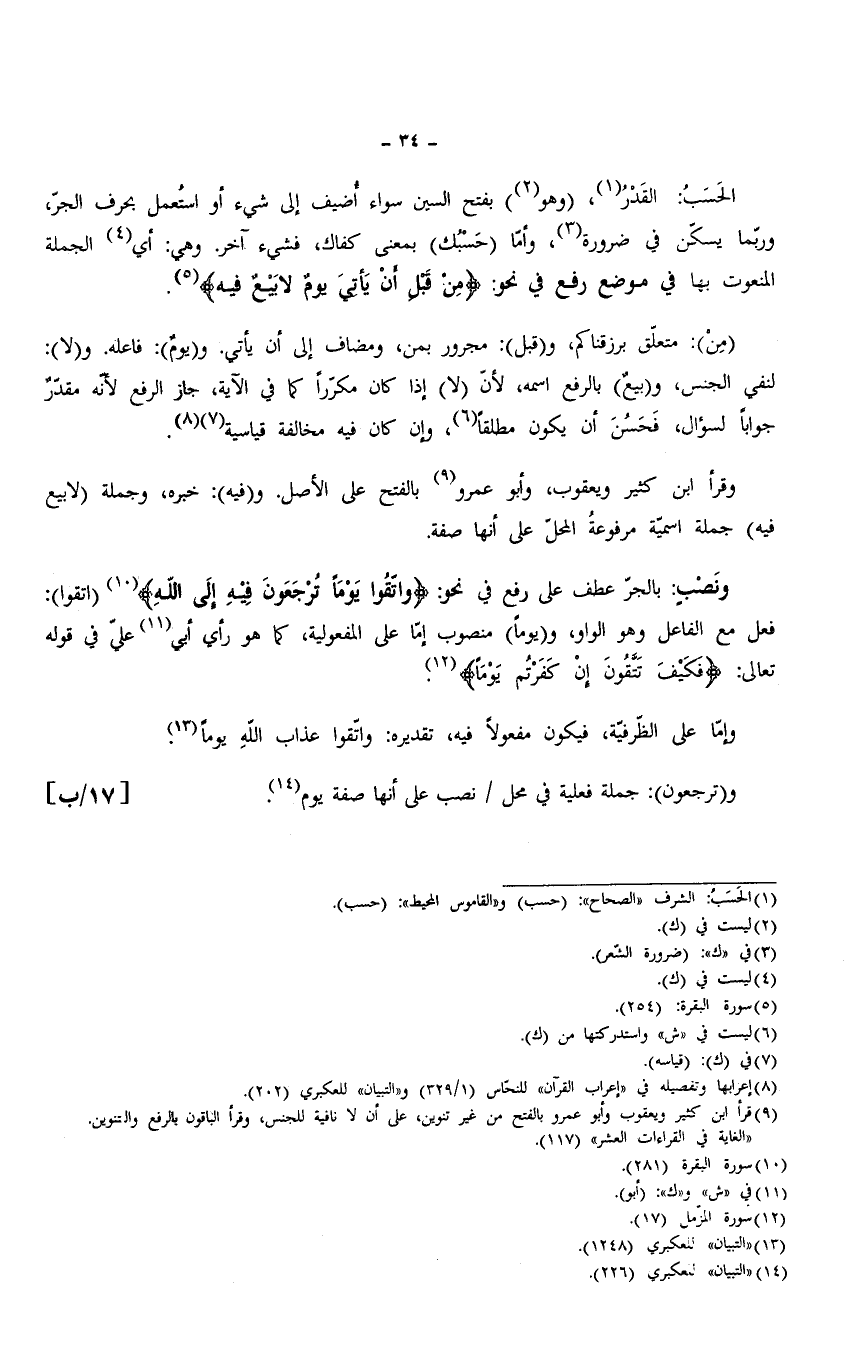 - ٣٤ -
الحَسَبُ: القَدْرُ(١)، (وهو(٢)) بفتح السين سواء أُضيف إلى شيء أو استُعمل بحرف الجرّ،
وربّما يسكّن في ضرورة(٣)، وأمّا (حَسْبُك) بمعنى كفاك، فشيء آخر. وهي: أي(٤) الجملة
المنعوت بها في موضع رفع في نحو: ﴿مِنْ قَبْلِ أَنْ يَأتِيَ يومٌ لابَيْعٌ فيه﴾(٥).
(مِنْ): متعلّق برزقناكم، و(قبل): مجرور بمن، ومضاف إلى أن يأتي. و(يومٌ): فاعله. و(لا):
لنفي الجنس، و(بيعٌ) بالرفع اسمه، لأنّ (لا) إذا كان مكرّراً كما في الآية، جاز الرفع لأنّه مقدّرٌ
جواباً لسؤال، فَحَسُنَ أن يكون مطلقاً(٦)، وإن كان فيه مخالفة قياسية(٧)(٨).
وقرأ ابن كثير ويعقوب، وأبو عمرو(٩) بالفتح على الأصل. و(فيه): خبره، وجملة (لابيع
فيه) جملة اسميّة مرفوعةُ المحلّ على أنها صفة.
ونَصْبٍ: بالجرّ عطف على رفع في نحو: ﴿واتّقُوا يَوْمَاً تُرْجَعَونَ فِيْهِ إِلَى اللّهِ﴾(١٠) (اتقوا):
فعل مع الفاعل وهو الواو، و(يوماً) منصوب إمّا على المفعولية، كما هو رأي أبي(١١) عليّ في قوله
تعالى: ﴿فَكَيْفَ تَتَّقُونَ إنْ كَفَرْتُم يَوْمَاً﴾(١٢).
وإمّا على الظّرفيّة، فيكون مفعولاً فيه، تقديره: واتّقوا عذاب اللّهِ يوماً(١٣).
و(ترجعون): جملة فعلية في محل / نصب على أنها صفة يوم(١٤). [١٧/ب]
(١) الحَسَبُ: الشرف «الصحاح»: (حسب) و«القاموس المحيط»: (حسب).
(٢) ليست في (ك).
(٣) في «ك»: (ضرورة الشّعر).
(٤) ليست في (ك).
(٥) سورة البقرة: (٢٥٤).
(٦) ليست في «ش» واستدركتها من (ك).
(٧) في (ك): (قياسه).
(٨) إعرابها وتفصيله في «إعراب القرآن» للنحّاس (٣٢٩/١) و«التبيان» للعكبري (٢٠٢).
(٩) قرأ ابن كثير ويعقوب وأبو عمرو بالفتح من غير تنوين، على أن لا نافية للجنس، وقرأ الباقون بالرفع والتنوين.
«الغاية في القراءات العشر» (١١٧).
(١٠) سورة البقرة (٢٨١).
(١١) في «ش» و«ك»: (أبو).
(١٢) سورة المزّمل (١٧).
(١٣) «التبيان» للعكبري (١٢٤٨).
(١٤) «التبيان» للعكبري (٢٢٦).